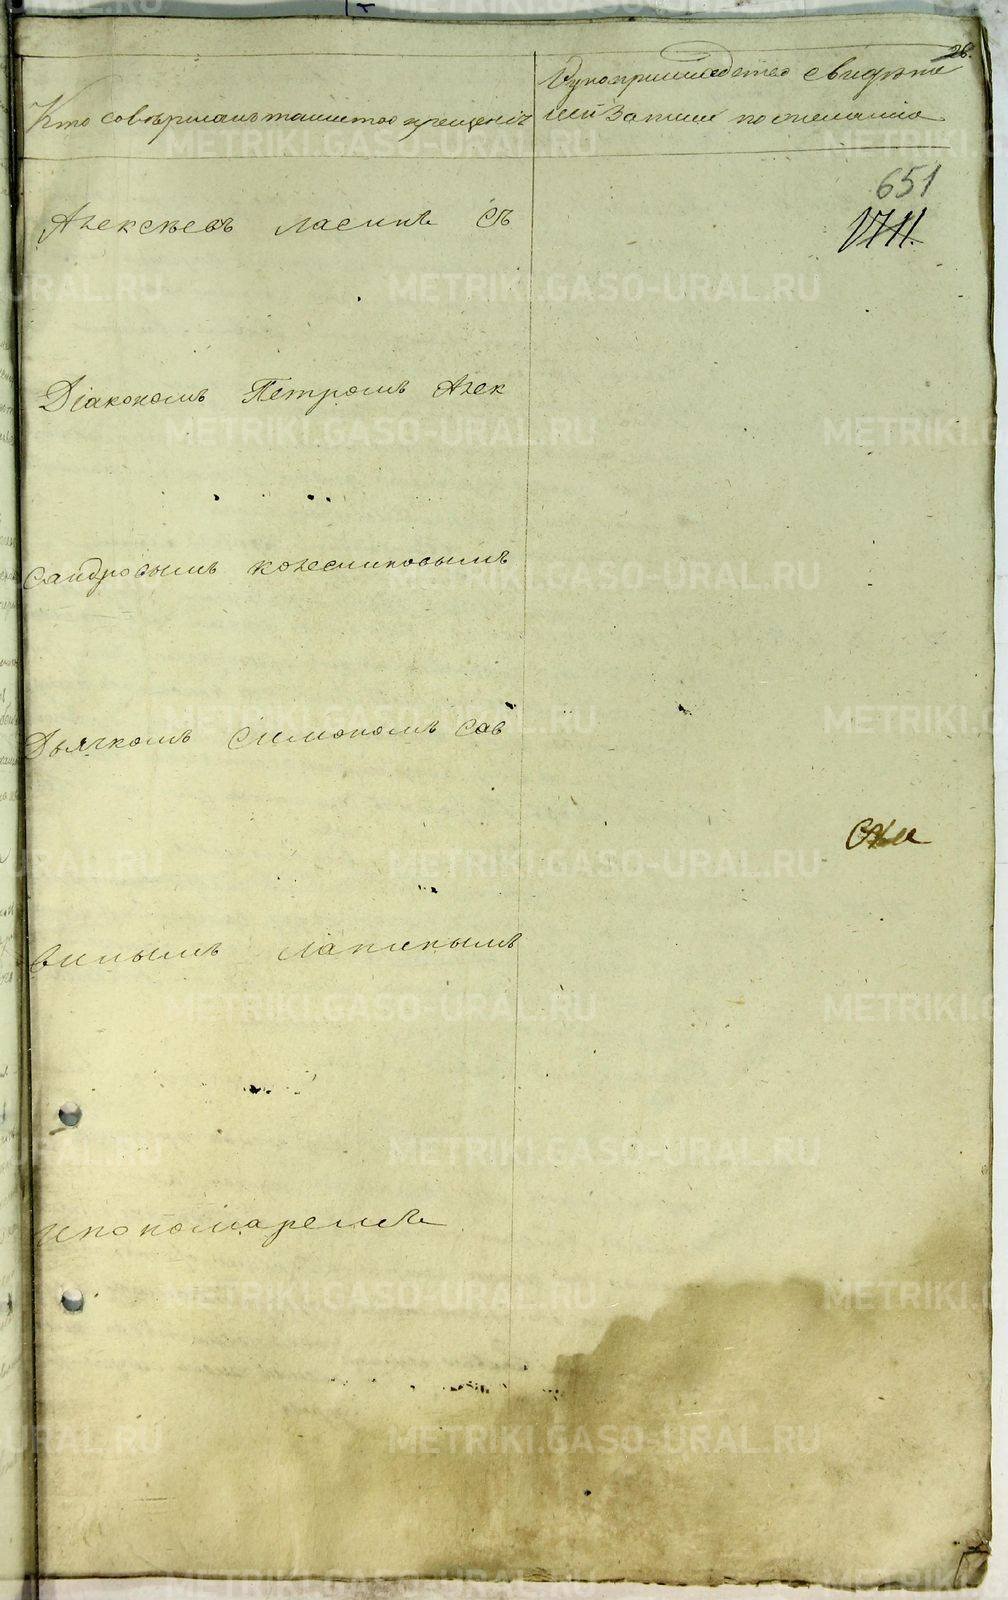 26.
Кто совершалъ таинство крещенія
Рукоприкладство свидѣте
лей записи по желанію
651
VIII.
Алексѣевъ Ласинъ съ
Діакономъ Петромъ Алек
сандровымъ колесниковымъ
Дьячкомъ Симономъ Сав
винымъ Лапинымъ
ипономаремъ
METRIKI.GASO-URAL.RU